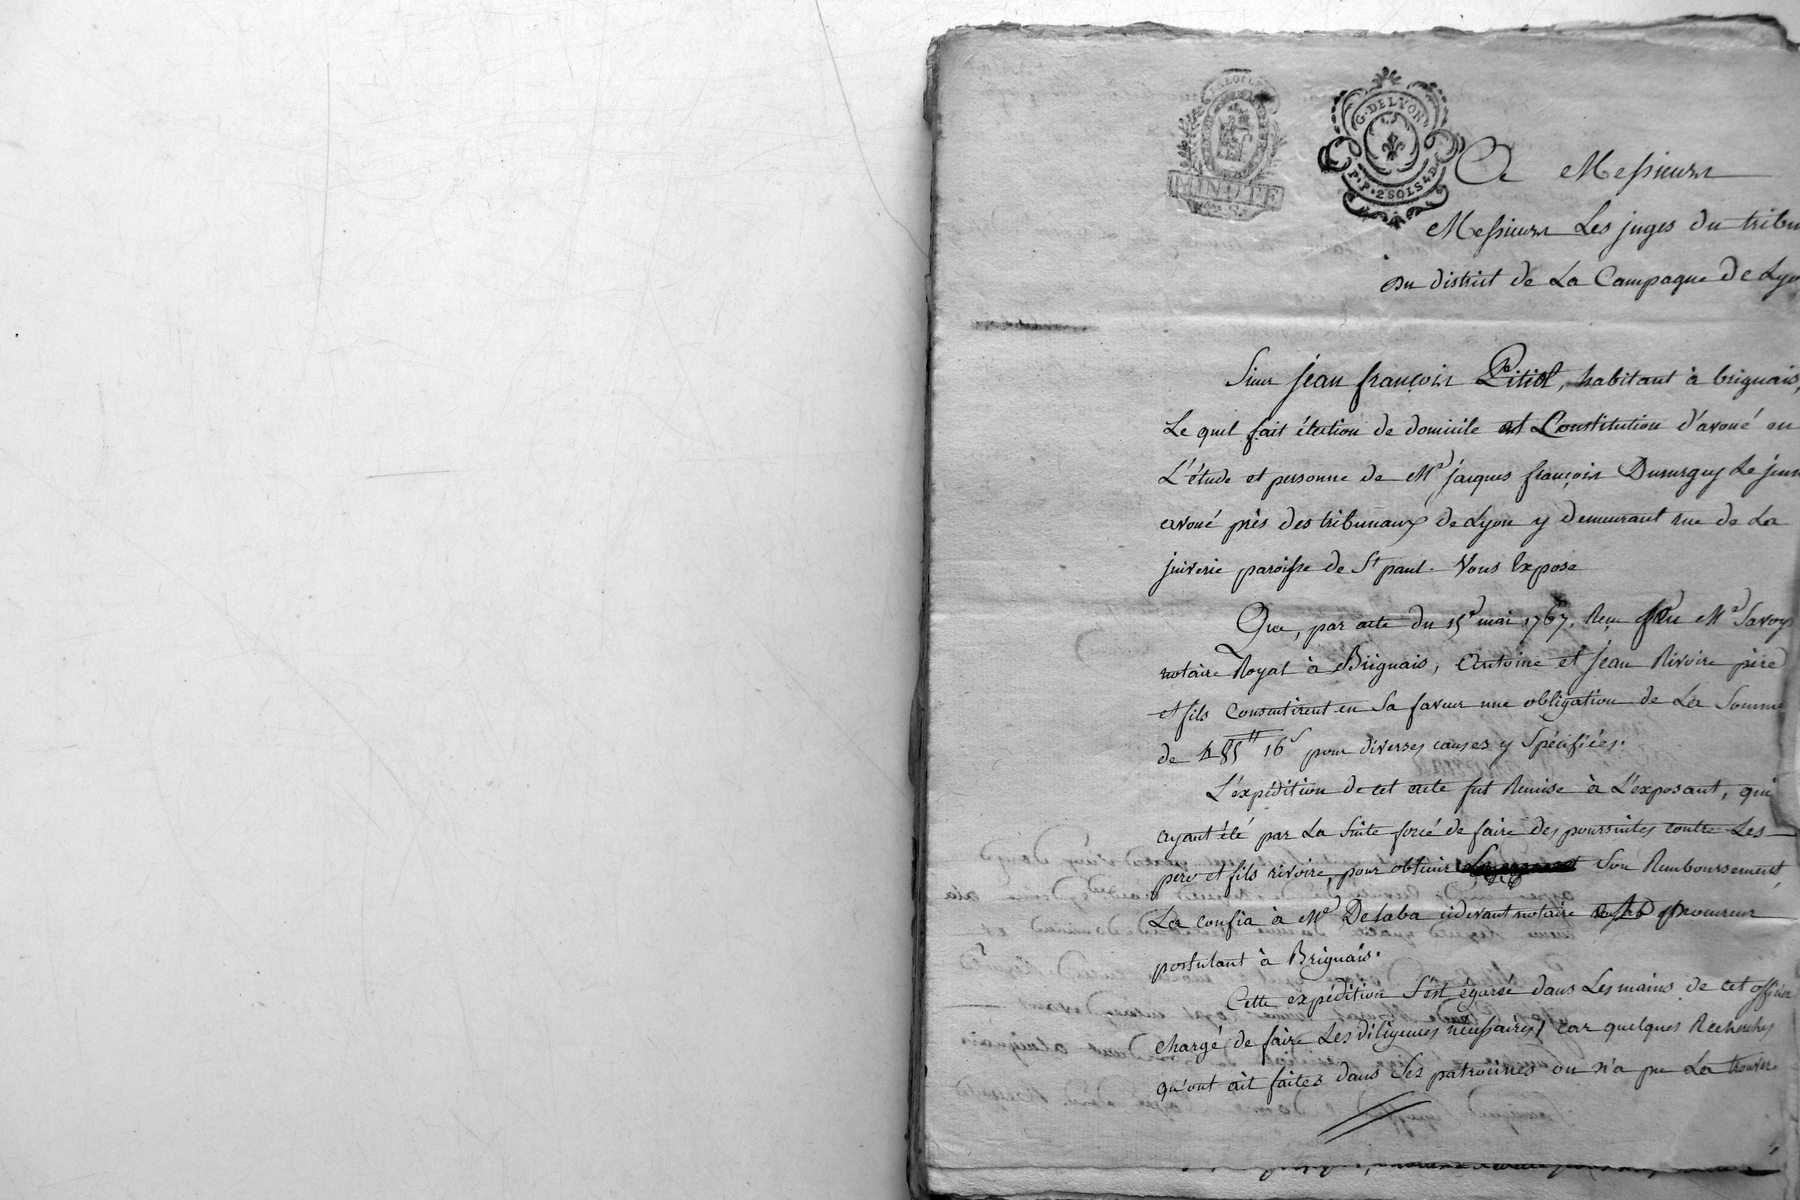 MINUTE
G. DE LYON
P.P. 2 SOLS 4 D
A Messieurs
Messieurs Les juges du tribu
Du district de La Campagne de Lyo
Sieur jean françois Pitiot, habitant à brignais,
Le quel fait élection de domicile et Constitution d'avoué en
L'étude et personne de Me jacques françois Le jeun
avoué près des tribunaux de Lyon y demeurant rue de La
juiverie paroisse de St paul. Vous Expose
Que, par acte du 15e mai 1767, Reçu Me Savoy
notaire Royal à Brignais, Antoine et jean Rivoire père
et fils Consentirent en Sa faveur une obligation de La Somme
de 485tt 16s pour diverses causes y Spécifiées.
L'expédition de cet acte fut Remise à L'exposant, qui
ayant été par La Suite forcé de faire des poursuites contre Les
père et fils rivoire, pour obtenir Son Remboursement,
La confia à Me Delaba cidevant notaire procureur
postulant à Brignais.
Cette expédition S'est égarée dans Les mains de cet officier
chargé de faire Les diligences nécessaires, car quelques Recherches
qu'ont ait faites dans Ses patrocines on n'a pu La trouver